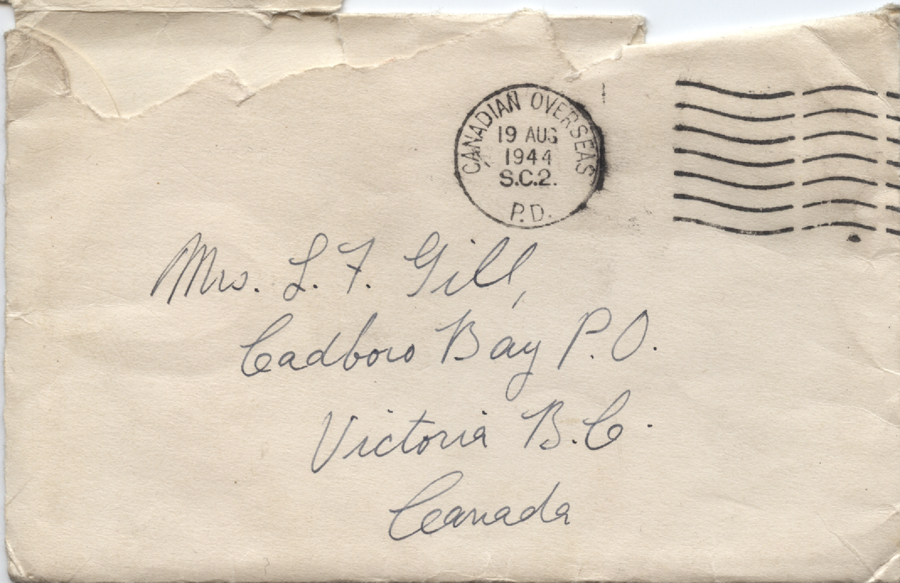 CANADIAN OVERSEAS
19 AUG
1944
S.C.2.
P.D.
Mrs. L. F. Gill,
Cadboro Bay P.O.
Victoria B.C.
Canada